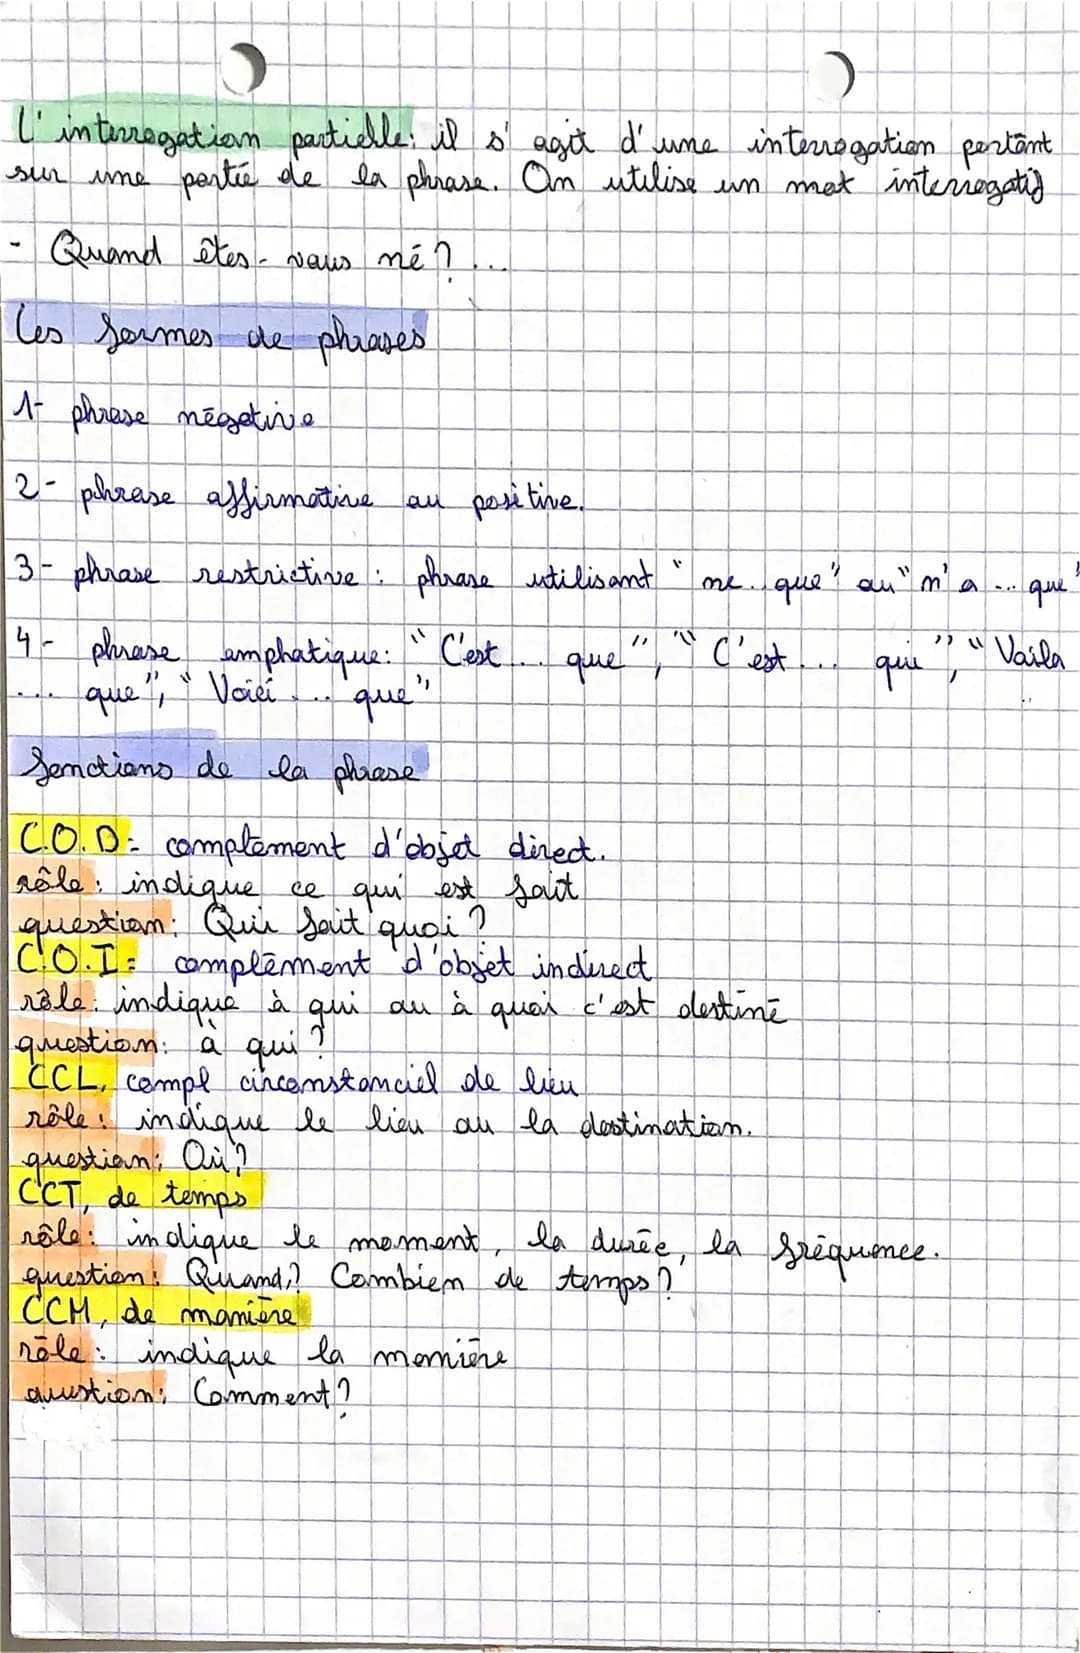 L'interrogation partielle: il s'agit d'une interrogation portant
sur une partie de la phrase. On utilise un mot interrogatif
- Quand êtes-vous né ? ...
Les formes de phrases
1- phrase négative
2- phrase affirmative ou positive.
3- phrase restrictive : phrase utilisant "ne...que" ou "n'a ... que"
4- phrase emphatique: "C'est ... que", "C'est ... qui", "Voila
... que", "Voici ... que"
Fonctions de la phrase
C.O.D= complément d'objet direct.
rôle: indique ce qui est fait
question: Qui fait quoi ?
C.O.I= complément d'objet indirect
rôle: indique à qui ou à quoi c'est destiné
question: à qui ?
CCL, compl circonstanciel de lieu
rôle: indique le lieu ou la destination.
question: Où ?
CCT, de temps
rôle: indique le moment, la durée, la fréquence.
question: Quand ? Combien de temps ?
CCM, de manière
rôle: indique la manière
question: Comment ?